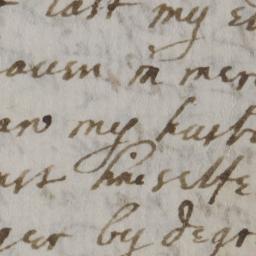 last my e
auen in mer
an my husb
nst himselfe
ger by degr